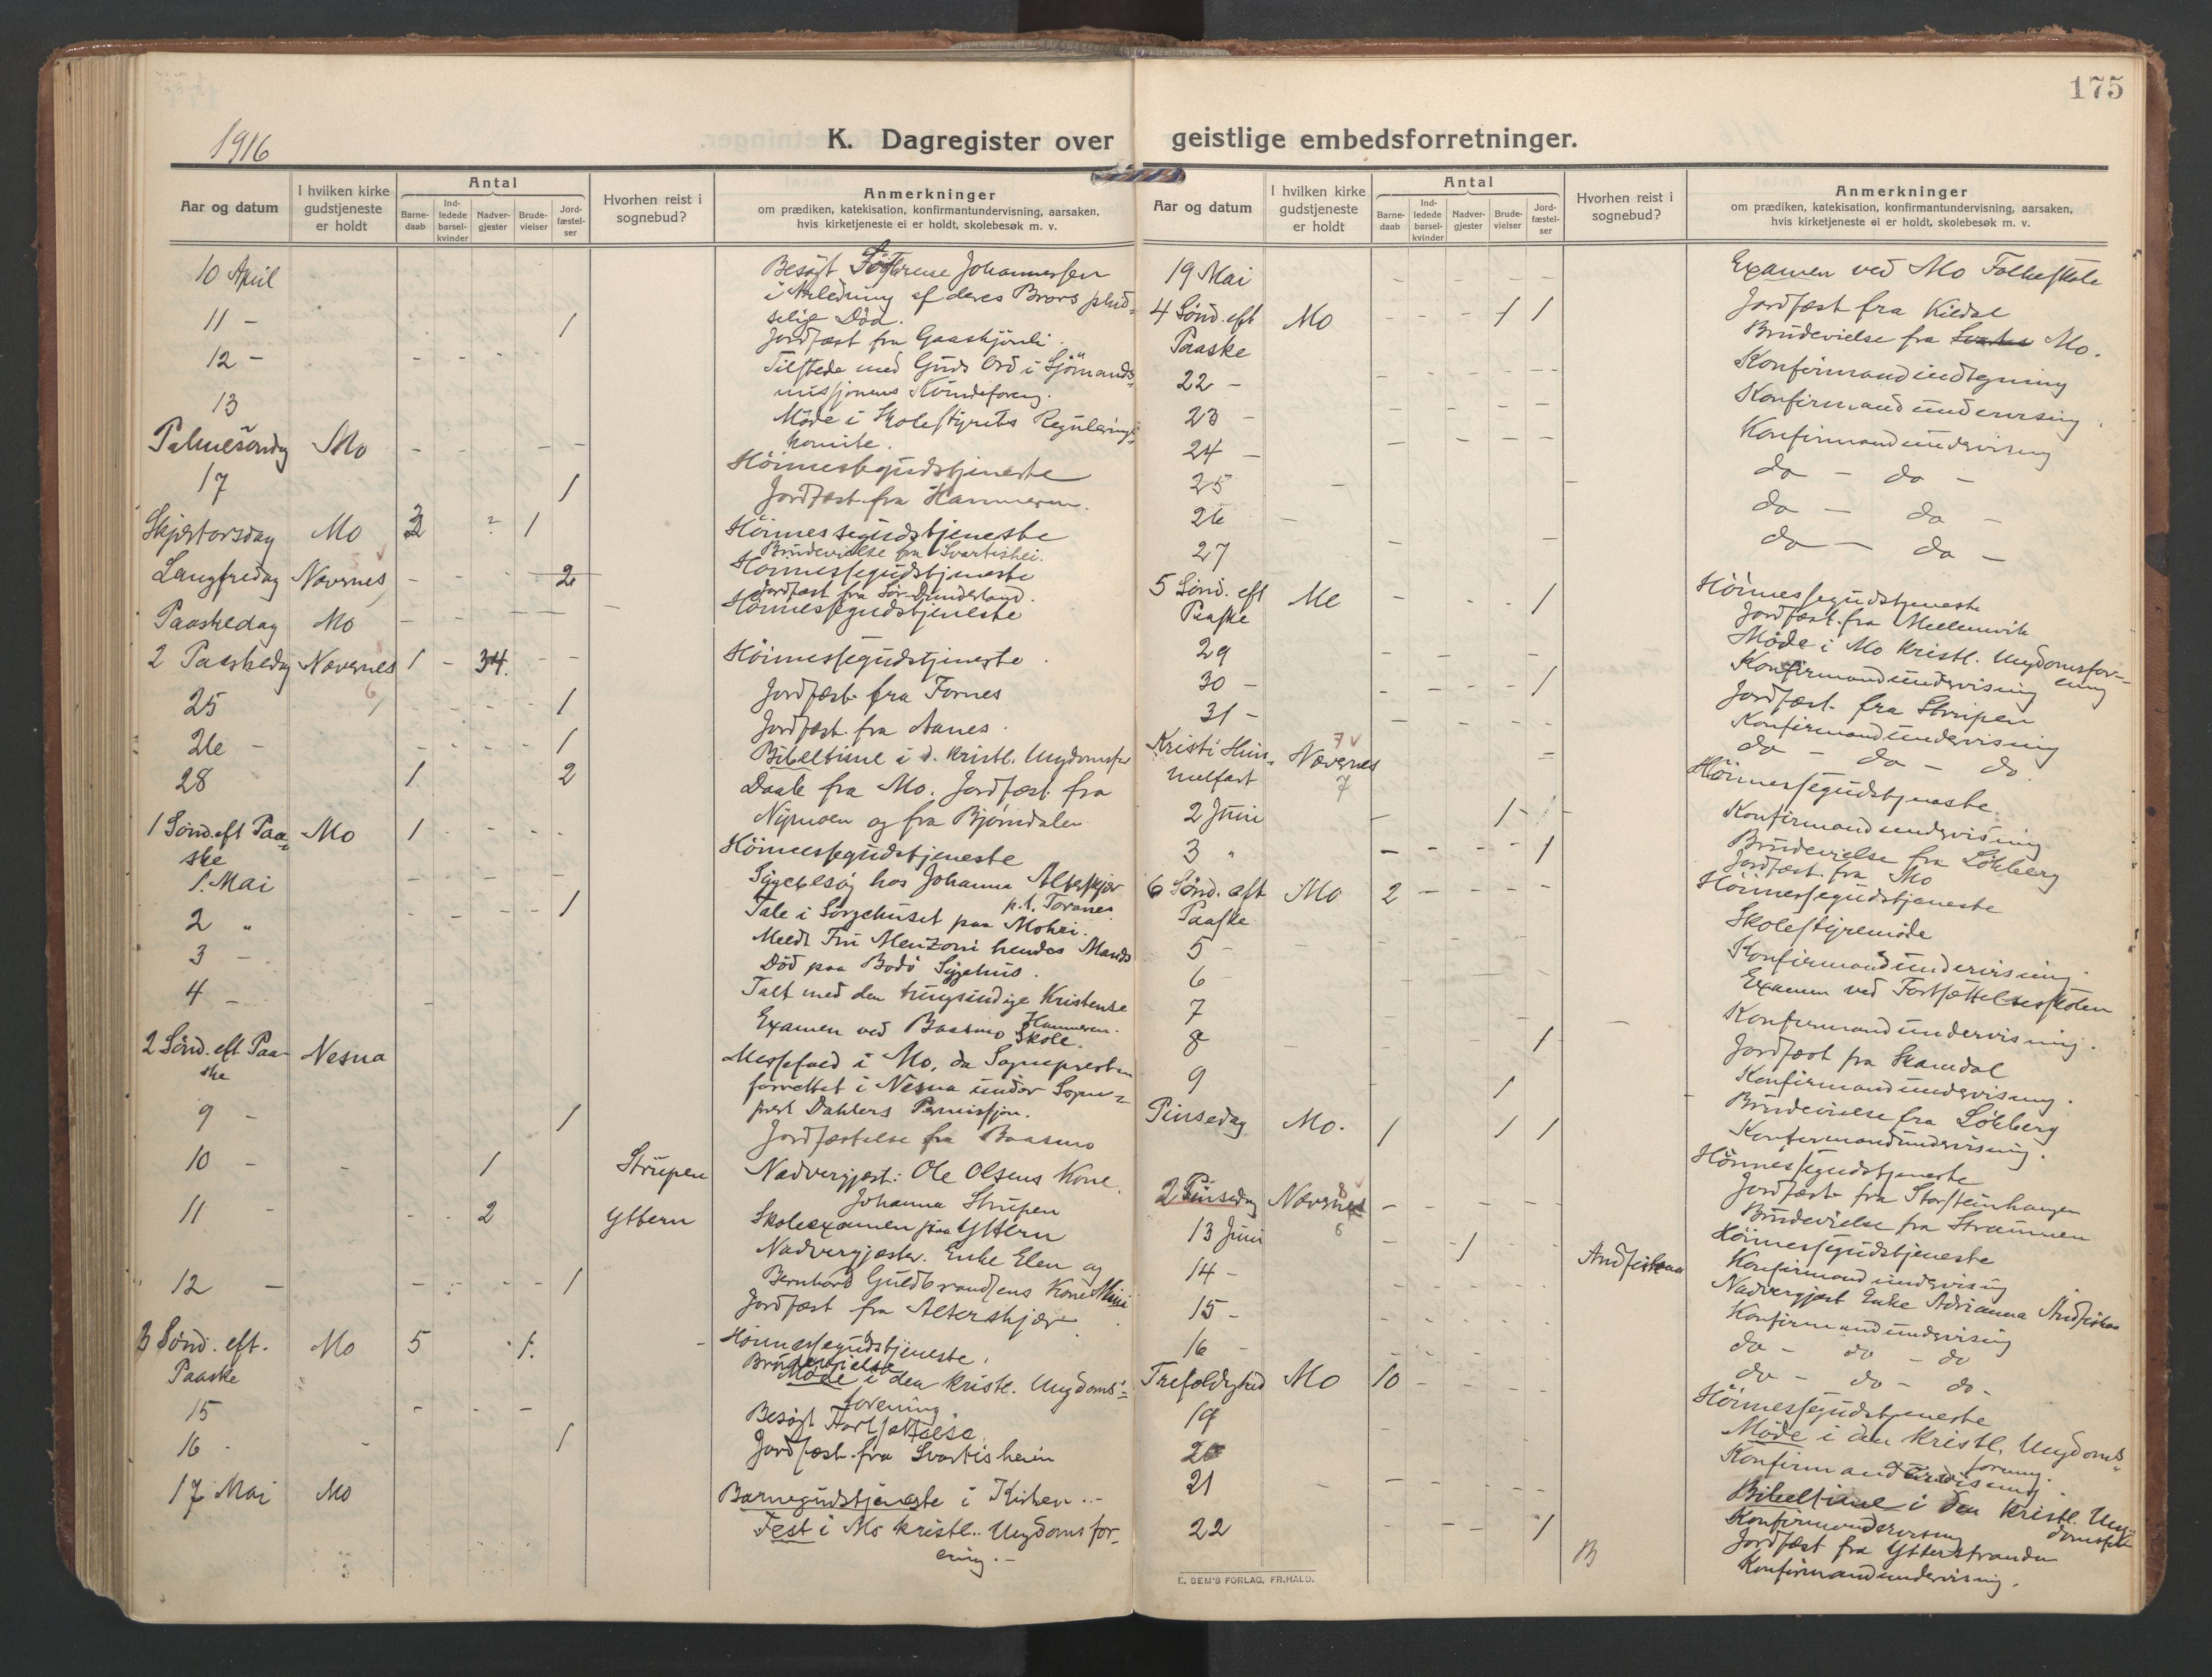 175
1916
K. Dagregister over geistlige embedsforretninger.
Aar og datum
I hvilken kirke gudstjeneste er holdt
Antal
Barne-daab
Ind-ledede barsel-kvinder
Nadver-gjester
Brude-vielser
Jord-fæstel-ser
Hvorhen reist i sognebud?
Anmerkninger
om prædiken, katekisation, konfirmantundervisning, aarsaken,
hvis kirketjeneste ei er holdt, skolebesøk m. v.
10 April Besøgt Johannessen
i Anledning af deres Brors plud-
selige Död.
11 - 1 Jordfæst fra Gaaskjönli.
12 - - - - - Tilstede med Guds Ord i Sjömands-
missjonens Kvindeforeng.
13 Möde i Skolestyrets Regulerings-
komite.
Palmesöndg Mo - - - - Höimessegudstjeneste
17 1 Jordfæst fra Hammeren.
Skjærtorsdag Mo 3 1 Höimessegudstjeneste
Brudevielse fra Svartishei.
Langfredag Nævernes - - - 2 Höimessegudstjeneste
Jordfæst fra Sör-Dunderland.
Paaskedag Mo - - - - - Höimessegudstjeneste
2 Paaskedg Nævernes 1 - 34. - - Höimessegudstjeneste.
25 - - - - 1 Jordfæst fra Fornes
26 - - - - - 1 Jordfæst fra Aanes.
Bibeltime i d. kristl. Ungdomsfor
28 1 2 Daab fra Mo. Jordfæst fra
Nymoen og fra Bjørndalen
1 Sønd. eft Paa-
ske Mo 1 - - - - Höimessegudstjeneste
1. Mai - - - - Sygebesög hos Johanna Alterskjær
p.t. Toranes
2 " - - - - 1 Tale i Sörgehuset paa Mohei.
3 - Meldt Fru Menzoni hendes Mands
Död paa Bodö Sygehus.
4 - - Talt med den tungsindige Kristense
Hammeren.
Examen ved Baasmo Skole.
2 Sønd. eft Paa-
ske Nesna Messefald i Mo, da Sogneprest
forrettet i Nesna under Sogne-
prest Dahlers Permissjon.
9 - 1 Jordfæstelse fra Baasmo
10 - - 1 Strupen Nadvergjest: Ole Olsens Kone
Johanna Strupen
11 - - - 2 Yttern Skoleexamen paa Yttern
Nadvergjester. Enke Elen og
Bernhard Guldbrandsens Kone
12 - - - - - 1 Jordfæst fra Alterskjær.
3 Sønd. eft.
Paaske Mo 5 1. - Höimessegudstjeneste.
Brudevielse
Möde i den kristl. Ungdoms-
forening.
15 - - - Besögt Fortsættelse
16 - - 1 Jordfæst fra Svartisheien
17 Mai Mo Barnegudstjeneste i Kirken..-
Fest i Mo kristl.. Ungdomsfor-
ening.-
Aar og datum
I hvilken kirke gudstjeneste er holdt
Antal
Barne-daab
Ind-ledede barsel-kvinder
Nadver-gjester
Brude-vielser
Jord-fæstel-ser
Hvorhen reist i sognebud?
Anmerkninger
om prædiken, katekisation, konfirmantundervisning, aarsaken,
hvis kirketjeneste ei er holdt, skolebesøk m. v.
19 Mai - - - - Examen ved Mo Folkeskole
4 Sønd. eft
Paaske Mo - - - 1 1 Jordfæst fra Kildal
Brudevielse fra Mo.
22 - - - - - Konfirmandindtegning
23 - - - - - Konfirmandundervising.
24 - - - - - Konfirmandundervising
25 - - do - do -
26 - - do - do -
27 - - do - do -
5 Sönd. eft
Paaske Mo - - - 1 Höimessegudstjeneste
Jordfæst fra Mellemvik
29 - - - - Möde i Mo Kristl. Ungdomsfor-
ening
Konfirmandundervising
30 - - - - - 1 Jordfæst fra Strupen
31 - - - - - Konfirmandundervising
do - do - do.
Kristi Him-
melfart Nævernes 7 7 Höimessegudstjeneste.
2 Juni - 1 - - Konfirmandundervising
Brudevielse fra Løkberg
3 " - - - - 1 Jordfæst. fra Mo
6 Sønd. eft
Paaske Mo 2 - - - - Höimessegudstjeneste
5 - - - - Skolestyremöde
6 - - Konfirmandundervising.
7 Examen ved Fortsættelsesskolen
8 - - - 1 Konfirmandundervising.
Jordfæst fra Skamdal
9 - 1 - Konfirmandundervising.
Brudevielse fra Løkberg
Konfirmandundervising.
Pinsedag Mo. 1 1 1 Höimessegudstjeneste
Jordfæst fra Storsteinhaugen
Brudevielse fra Straumen
2 Pinsedag Nævernes 8 6 - - - - Höimessegudstjeneste
13 Juni - - 1 - - Andfiskaa Konfirmandundervising
Nadvergjest Enke Adrianna Andfiskaa
14 - - - - - Konfirmandundervising
15 - - - - - do - do - do
16 - - - - do - do - do -
Trefoldighed Mo 10 - - - - Höimessegudstjeneste
19 - - - Möde i den kristl. Ungdoms-
forening.
20 Konfirmandundervising.
21 - - - - Bibeltime i den kristl. Ung-
domsfor
Konfirmandundervising
22 - - - 1 Jordfæst fra Ytterstranden
Konfirmandundervising.
B
E. SEM'S FORLAG, FR.HALD.